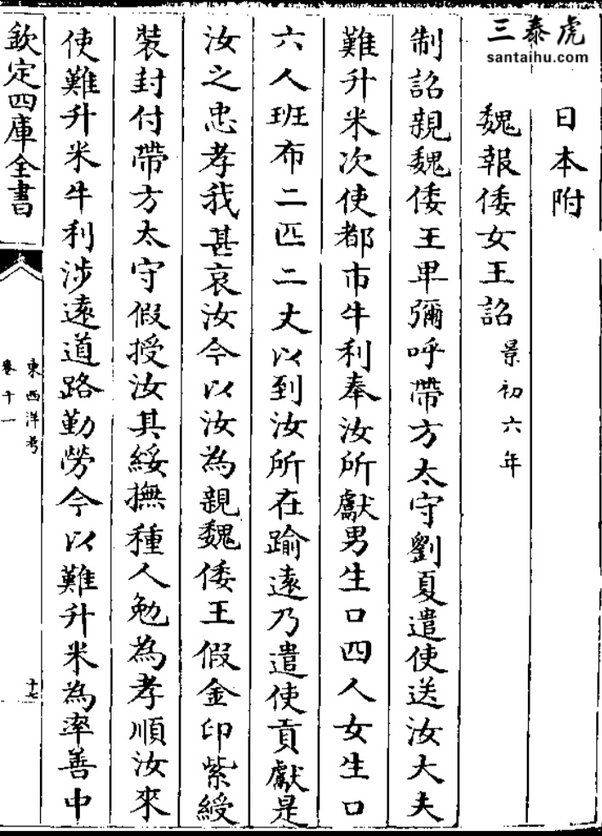 三泰虎
santaihu.com
日本附
魏報倭女王詔景初六年
制詔親魏倭王卑彌呼帶方太守劉夏遣使送汝大夫
難升米次使都市牛利奉汝所獻男生口四人女生口
六人班布二匹二丈以到汝所在踰遠乃遣使貢獻是
汝之忠孝我甚哀汝今以汝為親魏倭王假金印紫綬
裝封付帶方太守假授汝其綏撫種人勉為孝順汝來
使難升米牛利涉遠道路勤勞今以難升米為率善中
欽定四庫全書
東西洋考
卷十一
十七